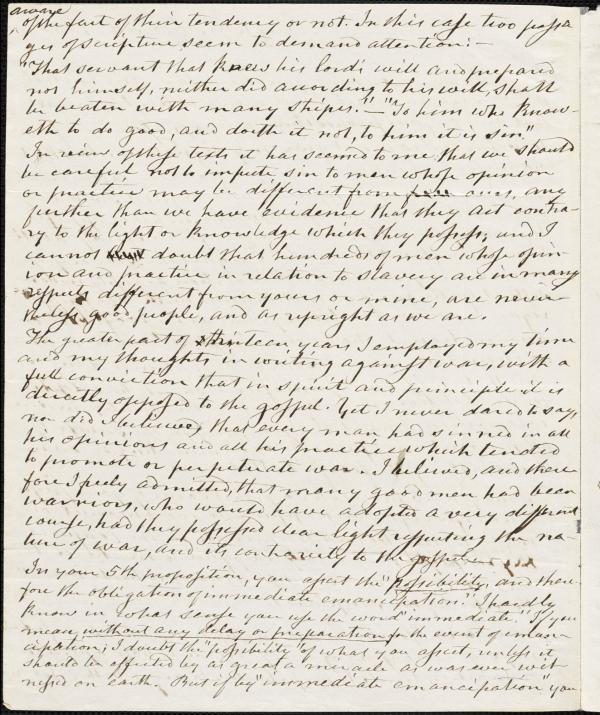 aware
of the fact of their tendency or not. In this case two passa
ges of scripture seem to demand attention:—
"That servant that knew his lord's will and prepared
not himself, neither did according to his will, shall
be beaten with many stripes."—"To him who know-
eth to do good, and doeth it not, to him it is sin."
In view of these texts it has seemed to me that we should
be careful not to impute sin to men whose opinion
or practice may be different from ours, any
further than we have evidence that they act contra-
ry to the light or knowledge which they possess; and I
cannot doubt that hundreds of men whose opin-
ion and practice in relation to slavery are in many
respects different from yours or mine, are never-
theless good people, and as upright as we are.
The greater part of thirteen years I employed my time
and my thoughts in writing against war, with a
full conviction that in spirit and principle it is
directly opposed to the gospel. Yet I never dared to say,
nor did I believe, that every man had sinned in all
his opinions and all his practice which tended
to promote or perpetuate war. I believed, and there
fore I freely admitted, that many good men had been
warriors, who would have adopted a very different
course, had they possessed clear light respecting the na-
ture of war, and its contrariety to the gospel.
In your 5th proposition, you assert the "possibility, and there-
fore the obligation of immediate emancipation." I hardly
know in what sense you use the word "immediate." If you
mean, without any delay or preparation for the event of eman-
cipation; I doubt the "possibility" of what you assert, unless it
should be effected by as great a miracle as was ever wit-
nessed on earth. But if by "immediate emancipation" you